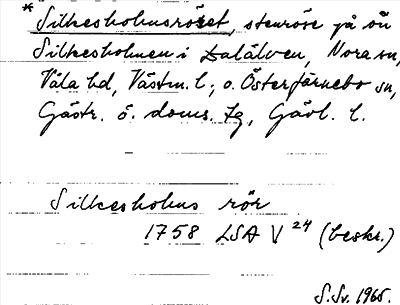 * Silkesholmsröset, stenröse på ön
Silkesholmen i Dalälven, Nora sn,
Våla hd, Västm. l.; o. Österfärnebo sn,
Gästr. ö. doms. tg, Gävl. l.
Silkesholms rör
1758 LSA V 24 (beskr.)
S. Sv. 1965.